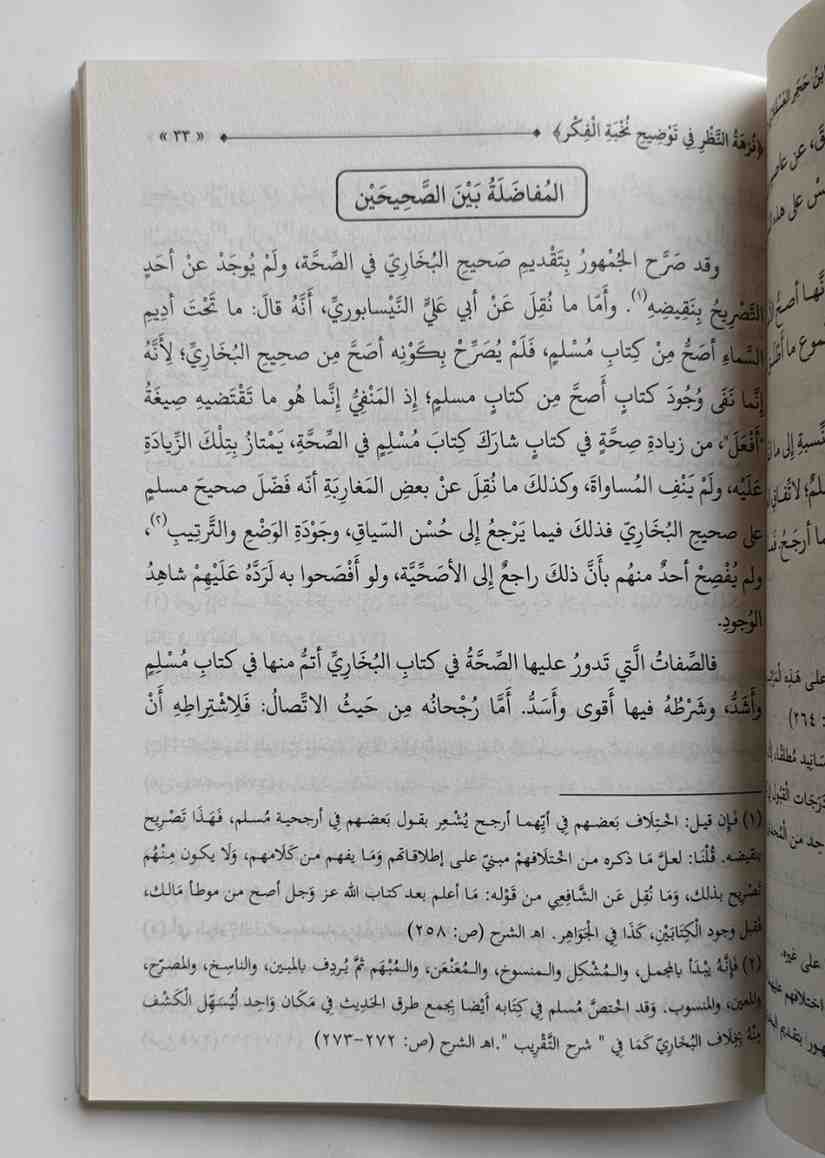 ﴿نُزْهَةُ النَّظَرِ فِي تَوْضِيحِ نُخْبَةِ الْفِكَر﴾ « ٣٣ »
المُفاضَلَةُ بَيْنَ الصَّحِيحَيْن
وقد صَرَّح الجُمْهورُ بِتَقْديمِ صَحيحِ البُخَاريّ في الصِّحَّة، ولَمْ يُوجَدْ عنْ أحَدٍ
التَّصْرِيحُ بِنَقِيضِهِ(١). وأَمَّا ما نُقِلَ عَنْ أبي عَلِيٍّ النَّيْسابوريِّ، أَنَّهُ قالَ: ما تَحْتَ أَدِيمِ
السَّماءِ أصَحُّ مِنْ كِتابِ مُسْلمٍ، فَلَمْ يُصَرِّحْ بِكَوْنِه أصَحَّ مِن صحيحِ البُخَارِيِّ؛ لِأَنَّهُ
إِنَّما نَفَى وُجُودَ كتابٍ أَصحَّ مِن كتابِ مسلمٍ؛ إذ المَنْفِيُّ إِنَّما هُو ما تَقْتَضيهِ صِيغَةُ
"أَفْعَلَ"، من زيادةِ صِحَّةٍ في كتابٍ شارَكَ كِتابَ مُسْلِمٍ في الصِّحَّةِ، يَمْتازُ بِتِلْكَ الزِّيادَةِ
عَلَيْه، ولَمْ يَنْفِ المُساواةَ، وكذلكَ ما نُقِلَ عنْ بعضِ المَغارِبَةِ أنَّه فَضّلَ صحيحَ مسلمٍ
على صحيحِ البُخَاريِّ فذلكَ فيما يَرْجعُ إلى حُسْن السِّياقِ، وجَوْدَةِ الوَضْعِ والتَّرتِيبِ(٢)،
ولم يُفْصِحْ أحدٌ منهُم بأَنَّ ذلكَ راجعٌ إلى الأصَحِّيَّة، ولو أَفْصَحوا به لَرَدَّهُ عَلَيْهِمْ شاهِدُ
الوُجُودِ.
فالصِّفاتُ الَّتي تَدورُ عليها الصِّحَّةُ في كتابِ البُخَارِيِّ أتمُّ منها في كتابِ مُسْلِمٍ
وأَشَدُّ، وشَرْطُهُ فيها أقوى وأَسَدُّ. أَمَّا رُجْحانُه مِن حَيثُ الاتِّصالُ: فَلِاشْتِراطِهِ أَنْ
(١) فَإِن قيل: اخْتِلَاف بَعضهم فِي أَيّهما أرجح يُشْعِر بقول بَعضهم فِي أرجحية مُسلم، فَهَذَا تَصْرِيح
بنقيضه. قُلْنَا: لعلَّ مَا ذكره من اخْتلَافهمْ مبنيّ على إطلاقاتهم وَمَا يفهم من كَلَامهم، وَلَا يكون مِنْهُم
تَصْرِيح بذلك، وَمَا نُقِل عَن الشَّافِعِي من قَوْله: مَا أعلم بعد كتاب الله عز وَجل أصح من موطأ مَالك،
فقبل وجود الْكِتَابَيْن، كَذَا فِي الْجَوَاهِر. اهـ الشرح (ص: ٢٥٨)
(٢) فَإِنَّهُ يبْدَأ بالمجمل، والمُشْكل والمنسوخ، والمُعَنْعَن، والمُبْهَم ثمَّ يُردِف بالمبين، والناسخ، والمصرّح،
والمعين، والمنسوب. وَقد اخْتصَّ مُسلم فِي كِتَابه أَيْضا بِجمع طرق الحَدِيث فِي مَكَان وَاحِد لُيُسَهِّل الْكَشْف
مِنْهُ بِخِلَاف البُخَارِيّ كَمَا فِي " شرح التَّقْرِيب ".اهـ الشرح (ص: ٢٧٢-٢٧٣)